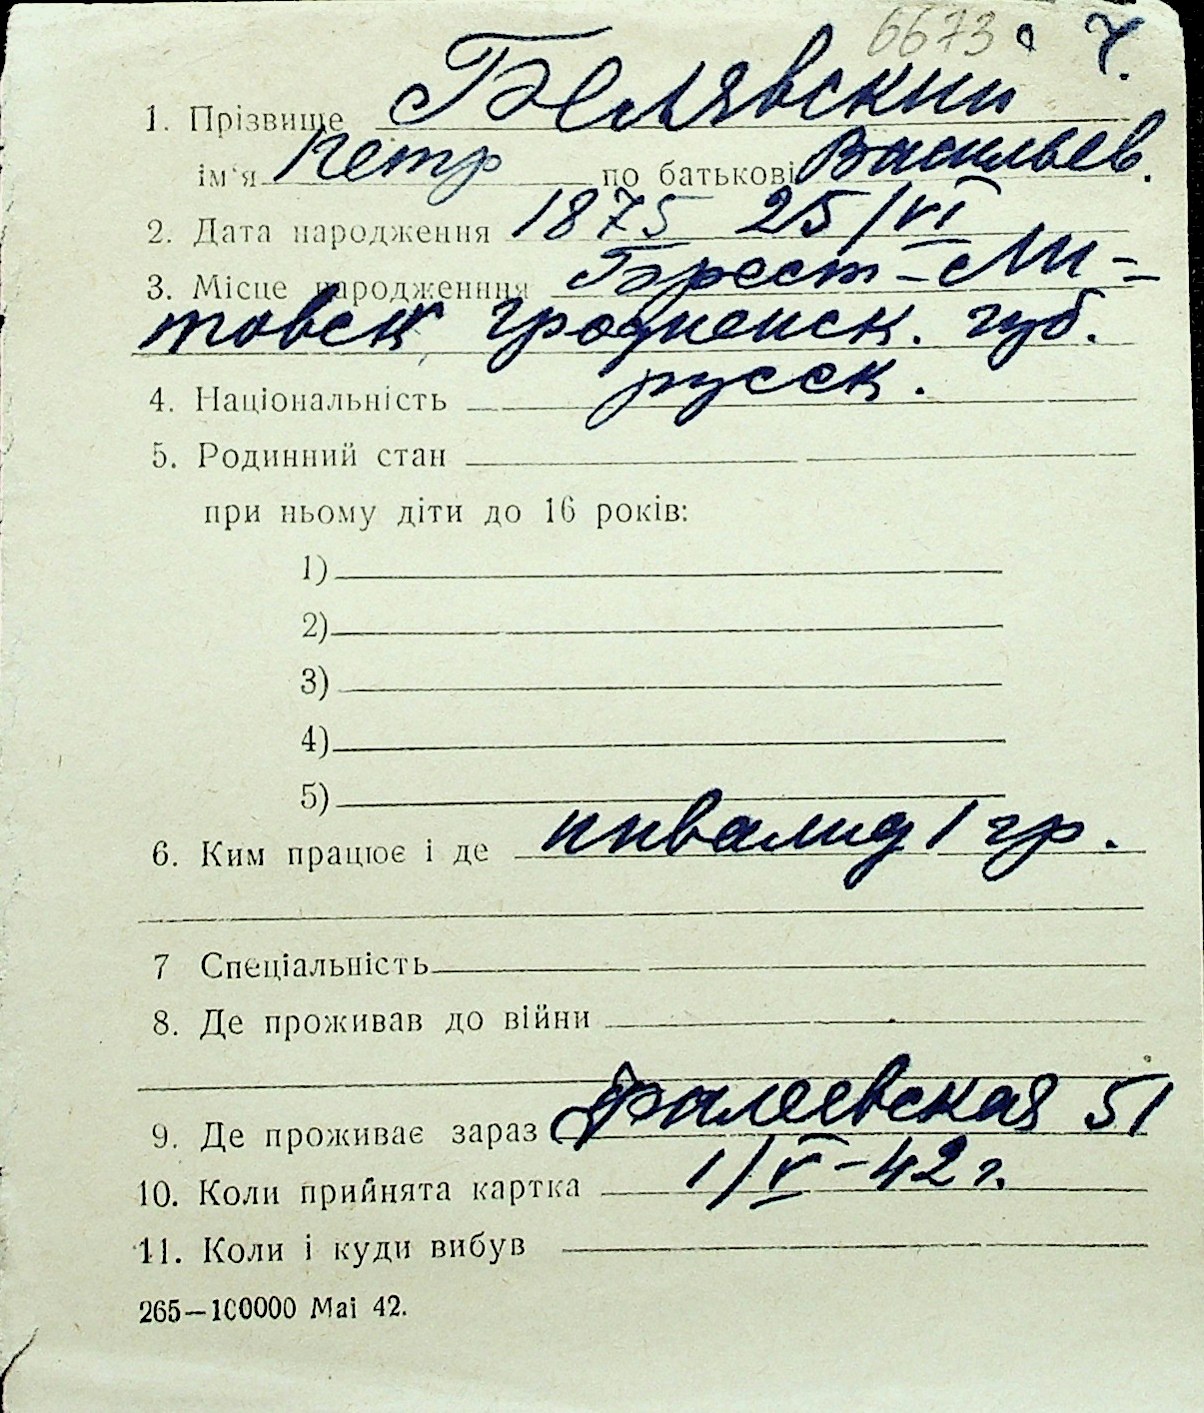 6673 ч.
1. Прізвище Белявский
ім‘я Петр по батькові Васильев.
2. Дата народження 1875 25/VI
3. Місце народженння Брест-Ли-
товск гродненск. губ.
4. Національність русск.
5. Родинний стан
при ньому діти до 16 років:
1)
2)
3)
4)
5)
6. Ким працює і де инвалид 1 гр.
7 Спеціальність
8. Де проживав до війни
9. Де проживає зараз Фалеевская 51
10. Коли прийнята картка 1/V-42 г.
11. Коли і куди вибув
265—100000 Mai 42.